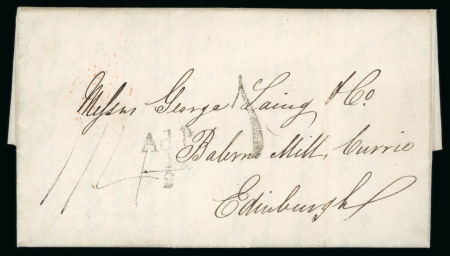 Messrs George Laing & Co
Balerno Mill, Currie
Edinburgh
1/4